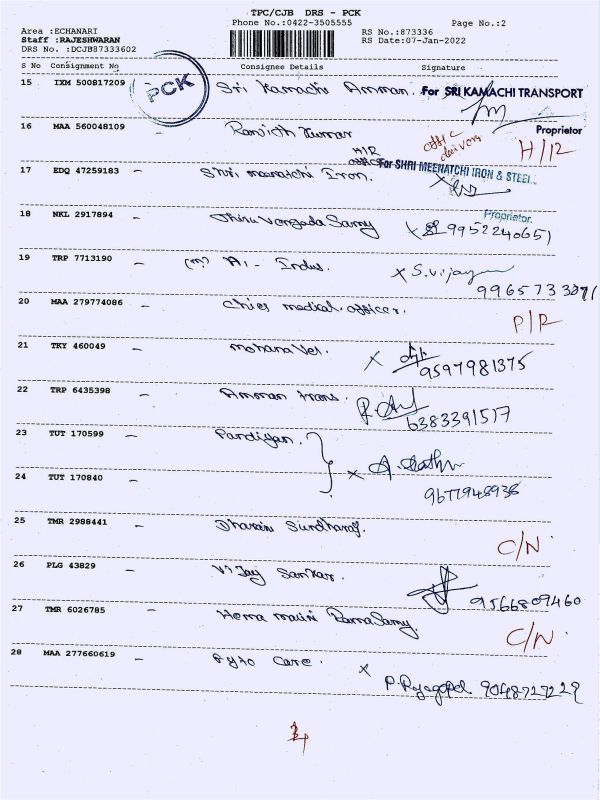 TPC/CJB DRS - PCK
Phone No.:0422-3505555
Page No.:2
Area :ECHANARI
Staff :RAJESHWARAN
DRS No. :DCJB87333602
RS No.:873336
RS Date:07-Jan-2022
S No Consignment No Consignee Details Signature
15 IXM 500817209 PCK Sri Kamachi Amman. For SRI KAMACHI TRANSPORT
Proprietor
16 MAA 560048109 Ranjith Kumar H/R
17 EDQ 47259183 - Shri meenatchi Iron. For SHRI MEENATCHI IRON & STEEL
Proprietor.
18 NKL 2917894 - Thiru Vengada Samy 9952240651
19 TRP 7713190 - A1 - Indus. x S.Vijay
20 MAA 279774086 - Chief medical officer. P/R
21 TKY 460049 - Mohana Vel. x 9597981375
22 TRP 6435398 - Amman trans. 6383391517
23 TUT 170599 - Pandiyan. x
24 TUT 170840 -
25 TMR 2988441 - Sundharaj. C/N
26 PLG 43829 - Vijay Sankar. 9566809460
27 TMR 6026785 - Hema RamaSamy. C/N
28 MAA 277660619 - Care. x P. Rajagopal 9048727229